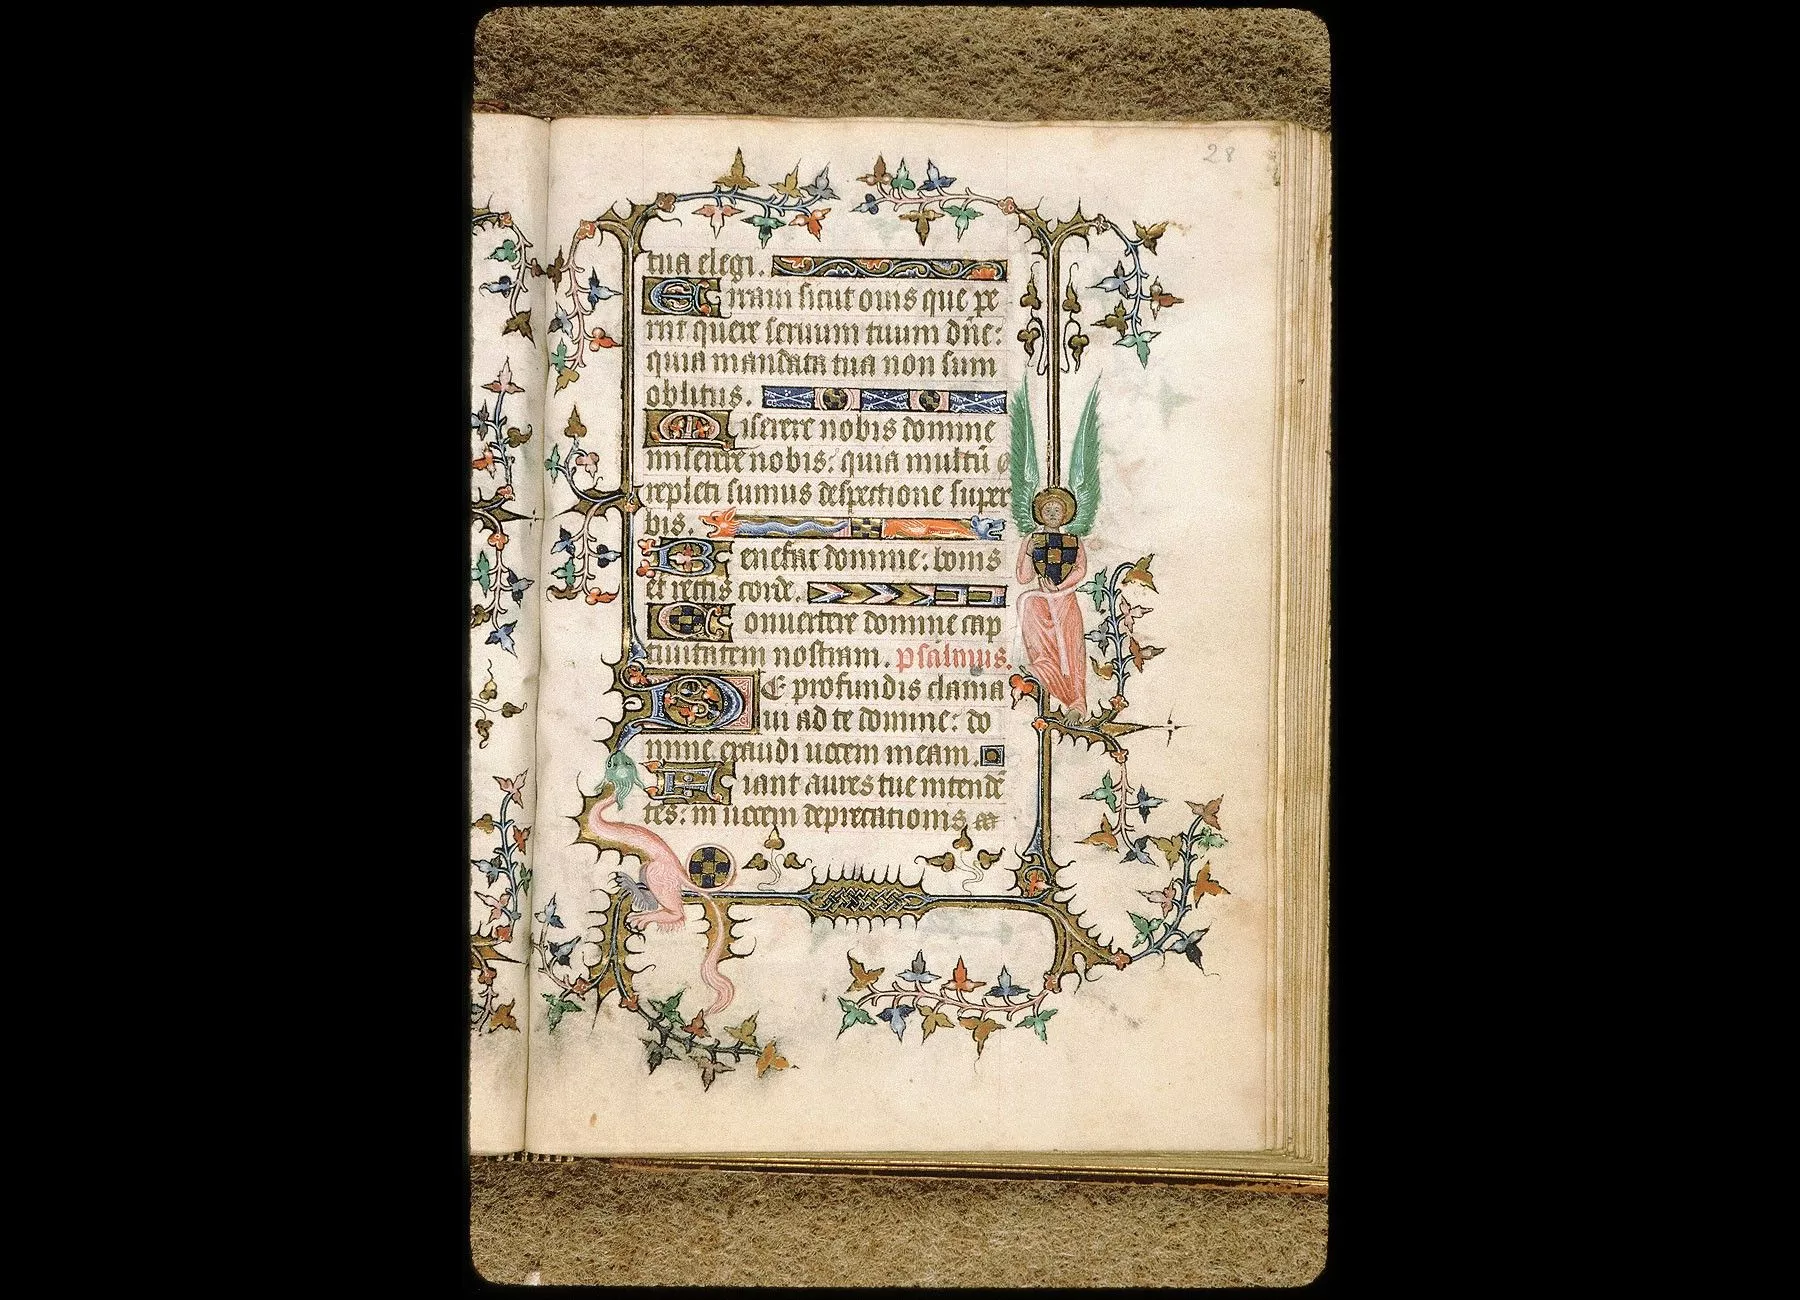 28
tua elegi.
Erraui sicut ouis que pe
riit quere seruum tuum dñe:
quia mandata tua non sum
oblitus.
Miserere nobis domine
miserere nobis: quia multū
repleti sumus despectione super
bis.
Benefac domine: bonis
et rectis corde.
Conuertere domine cap
tiuitatem nostram. psalmus.
DE profundis clama
ui ad te domine: do
mine exaudi uocem meam.
Fiant aures tue intendē
tes: in uocem deprecationis